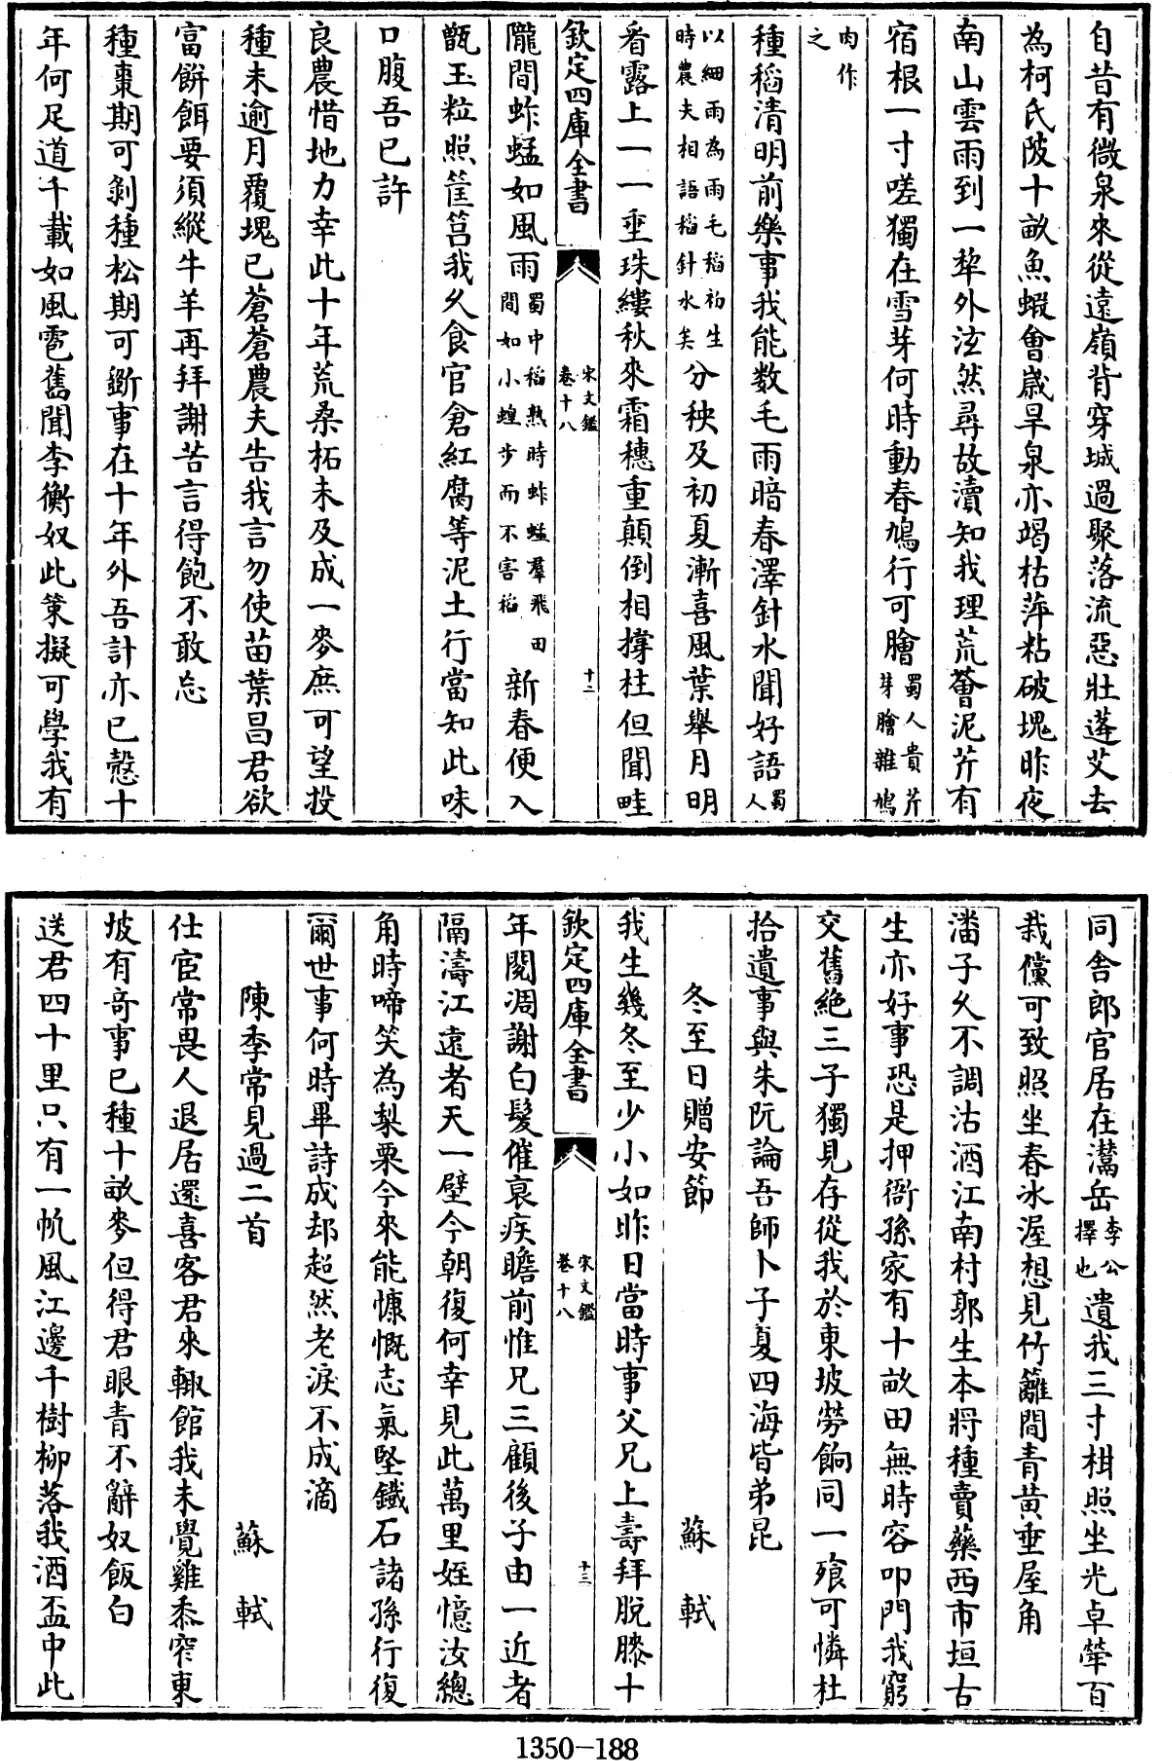 自昔有微泉來從遠嶺背穿城過聚落流惡壯蓬艾去
為柯氏陂十畝魚蝦會歲旱泉亦竭枯萍粘破塊昨夜
南山雲雨到一犂外泫然尋故瀆知我理荒薈泥芹有
宿根一寸嗟獨在雪芽何時動春鳩行可膾蜀人貴芹芽膾雜鳩
肉作之
種稻清明前樂事我能數毛雨暗春澤針水聞好語蜀人
以細雨為雨毛稻初生時農夫相語稻針水矣分秧及初夏漸喜風葉舉月明
看露上一一垂珠縷秋來霜穗重顛倒相撐柱但聞畦
欽定四庫全書
宋文鑑
卷十八
十二
隴間蚱蜢如風雨蜀中稻熟時蚱蜢羣飛田間如小蝗步而不害稻新春便入
甑玉粒照筐筥我久食官倉紅腐等泥土行當知此味
口腹吾已許
良農惜地力幸此十年荒桑柘未及成一麥庶可望投
種未逾月覆塊已蒼蒼農夫告我言勿使苗葉昌君欲
富餅餌要須縱牛羊再拜謝苦言得飽不敢忘
種棗期可剝種松期可斵事在十年外吾計亦已慤十
年何足道千載如風雹舊聞李衡奴此策擬可學我有
同舍郎官居在灊岳李公擇也遺我三寸柑照坐光卓犖百
栽儻可致照坐春氷渥想見竹籬間青黃垂屋角
潘子久不調沽酒江南村郭生本將種賣藥西市垣古
生亦好事恐是押衙孫家有十畝田無時容叩門我窮
交舊絶三子獨見存從我於東坡勞餉同一飧可憐杜
拾遺事與朱阮論吾師卜子夏四海皆弟昆
冬至日贈安節　蘇軾
我生幾冬至少小如昨日當時事父兄上壽拜脫膝十
欽定四庫全書
宋文鑑
卷十八
十三
年閱凋謝白髮催衰疾瞻前惟兄三顧後子由一近者
隔濤江遠者天一壁今朝復何幸見此萬里姪憶汝總
角時啼笑為梨栗今來能慷慨志氣堅鐵石諸孫行復
爾世事何時畢詩成却超然老淚不成滴
陳季常見過二首　蘇軾
仕宦常畏人退居還喜客君來輙館我未覺雞黍窄東
坡有奇事已種十畝麥但得君眼青不辭奴飯白
送君四十里只有一帆風江邊千樹柳落我酒盃中此
1350-188